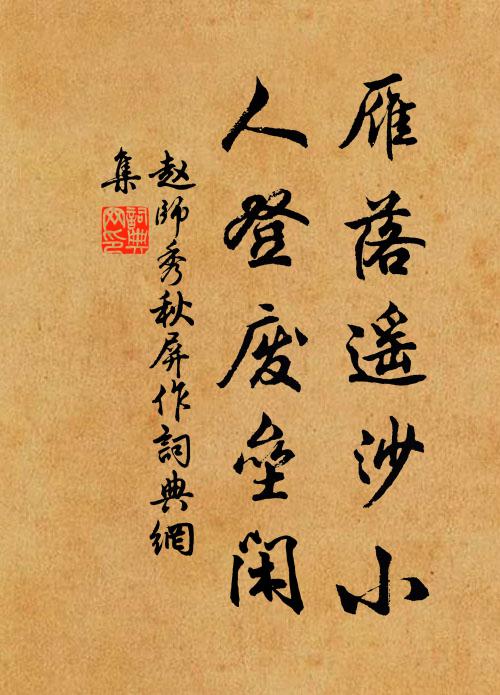 雁落遥沙小
人登废垒闲
赵師秀秋屏作詞典網
集
詞典网印